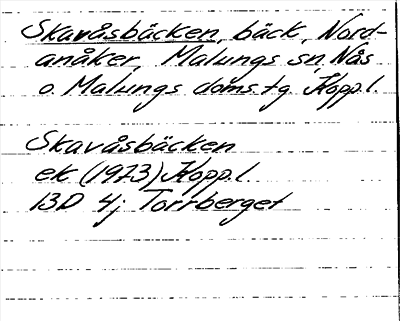 Skavåsbäcken, bäck, Nord-
anåker, Malungs sn, Nås
o. Malungs doms.tg Kopp.l.
Skavåsbäcken
ek (1973) Kopp.l.
13D 4j Torrberget